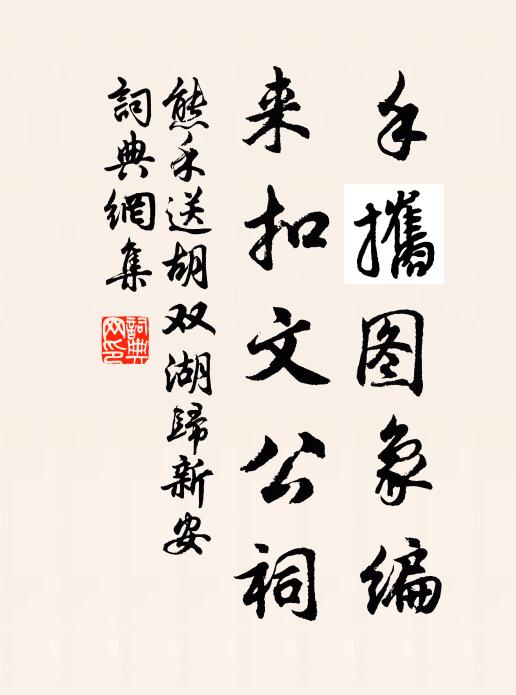 手攜图象编
来扣文公祠
熊禾送胡双湖歸新安
詞典網集
詞典网印